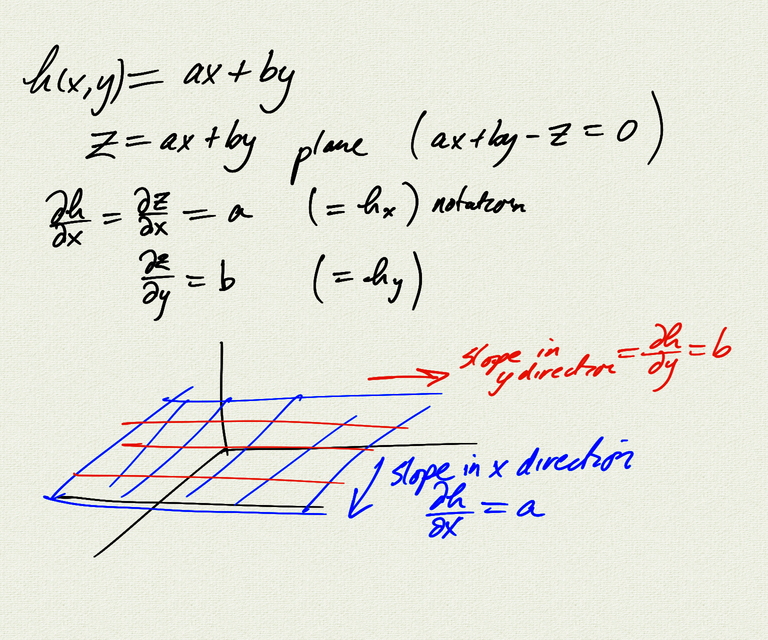 h(x,y) = ax + by
z = ax + by plane (ax + by - z = 0)
∂h/∂x = ∂z/∂x = a (= hₓ) notation
∂z/∂y = b (= h_y)
slope in y direction = ∂h/∂y = b
slope in x direction
∂h/∂x = a